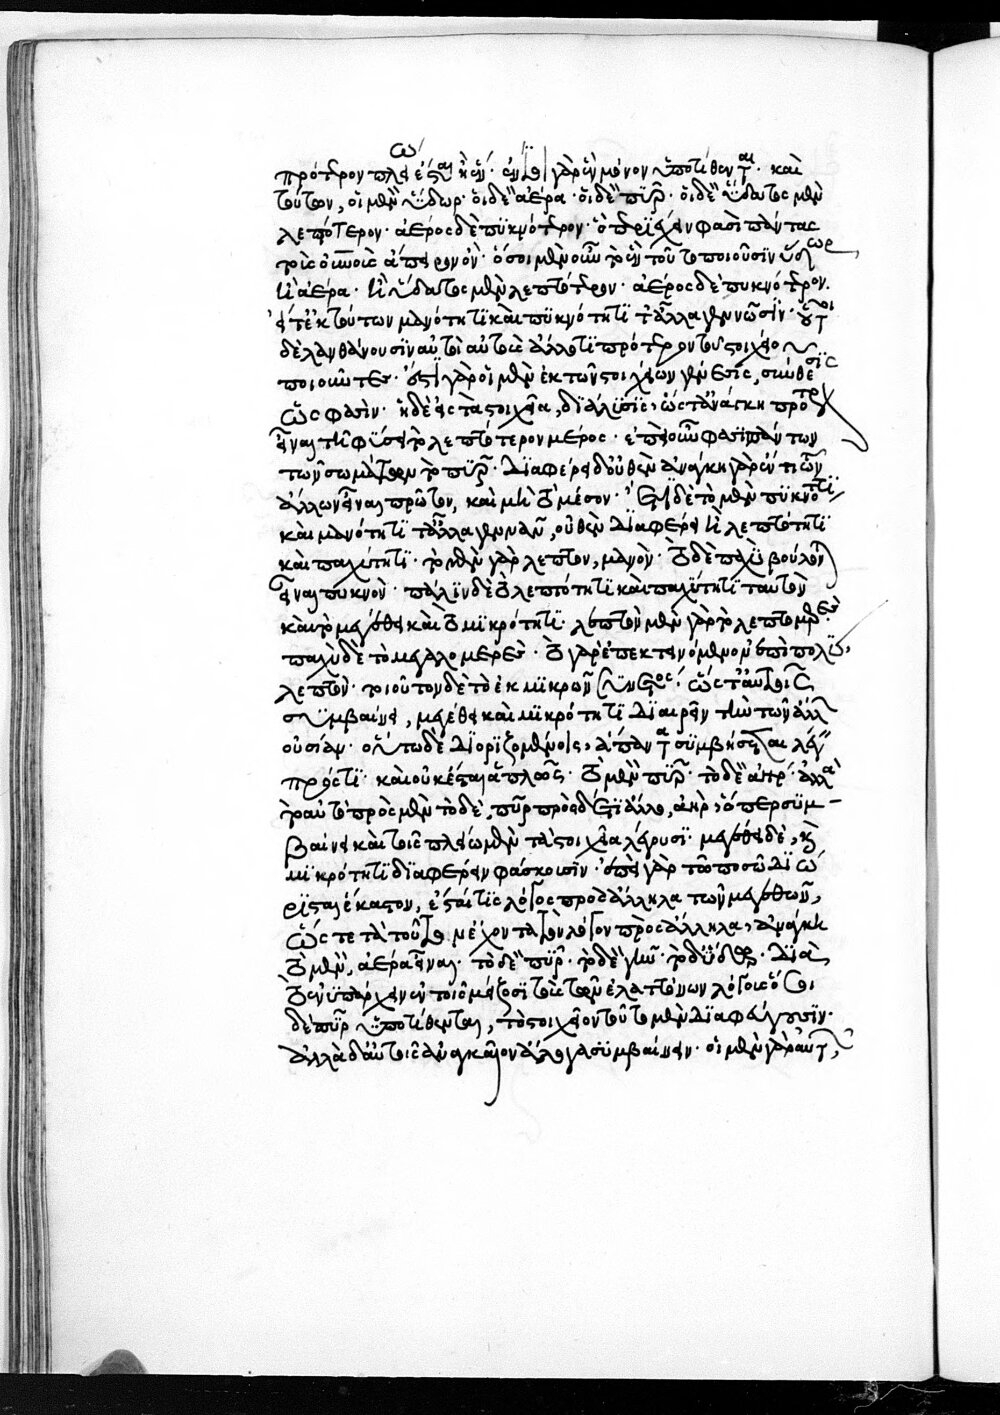 πρότερον πλείω ἐστὶν ἢ ἕν· ἔνιοι γὰρ ἓν μόνον ὑποτίθενται· καὶ
τοῦτον, οἱ μὲν ὕδωρ· οἱ δὲ ἀέρα· οἱ δὲ πῦρ· οἱ δὲ ὕδατος μὲν
λεπτότερον· ἀέρος δὲ πυκνότερον· ὃ περιέχειν φασὶ πάντας
τοὺς οὐνοὺς ἄπειρον ὄν· ὅσοι μὲν οὖν τὸ ἓν τοῦτο ποιοῦσιν ὕδωρ
ἢ ἀέρα· ἢ ὕδατος μὲν λεπτότερον· ἀέρος δὲ πυκνότερον.
εἶτ' ἐκ τούτων μανότητι καὶ πυκνότητι τἄλλα γεννῶσιν· οὗτοι
δὲ λανθάνουσιν αὐτοὶ αὑτοὺς ἄλλο τι πρότερον τοῦ στοιχείου
ποιοῦντες· ἔστι γὰρ ἡ μὲν ἐκ τῶν στοιχείων γένεσις, σύνθεσις
ὥς φασιν· ἡ δὲ εἰς τὰ στοιχεῖα, διάλυσις, ὥστ' ἀνάγκη πρότερον
εἶναι τῇ φύσει τὸ λεπτότερον μέρος· ἐπεὶ οὖν φασὶ πάντων
τῶν σωμάτων τὸ πῦρ· διαφέρει δ' οὐθὲν ἀνάγκη γὰρ ἕν τι τῶν
ἄλλων εἶναι πρῶτον, καὶ μὴ τὸ μέσον· ἔτι δὲ τὸ μὲν πυκνότητι
καὶ μανότητι τἄλλα γεννᾶν, οὐθὲν διαφέρει ἢ λεπτότητι
καὶ παχύτητι· τὸ μὲν γὰρ λεπτὸν, μανόν· τὸ δὲ παχὺ βούλονται
εἶναι πυκνόν· πάλιν δὲ τὸ λεπτότητι καὶ παχύτητι ταυτὸν
καὶ τὸ μεγέθει καὶ τὸ μικρότητι· λεπτὸν μὲν γὰρ τὸ λεπτομερές·
παχὺ δὲ τὸ μεγαλομερές· τὸ γὰρ ἐπεκτεινόμενον ἐπὶ πολύ,
λεπτόν· τοιοῦτον δὲ τὸ ἐκ μικρῶν συνεστός· ὥστ' αὐτοῖς
συμβαίνει, μεγέθει καὶ μικρότητι διαιρεῖν τὴν τῶν ἄλλων
οὐσίαν· οὕτω δὲ διοριζομένοις, ἅπαντα συμβήσεται λέγειν
πρός τι· καὶ οὐκ ἔσται ἁπλῶς· τὸ μὲν πῦρ· τὸ δὲ ἀήρ· ἀλλὰ
τὸ αὐτὸ πρὸς μὲν τὸδε, πῦρ πρὸς δέ τι ἄλλο, ἀήρ, ὅπερ συμ-
βαίνει καὶ τοῖς πλείω μὲν τὰ στοιχεῖα λέγουσι· μεγέθει δὲ, καὶ
μικρότητι διαφέρειν φάσκουσιν· ἐπεὶ γὰρ τῷ ποσῷ διώ-
ρισται ἕκαστον, ἔσται τις λόγος πρὸς ἄλληλα τῶν μεγεθῶν,
ὥστε τὰ τοῦτον ἔχοντα τὸν λόγον πρὸς ἄλληλα, ἀνάγκη
τὸ μὲν, ἀέρα εἶναι· τὸ δὲ πῦρ· τὸ δὲ γῆν· τὸ δ' ὕδωρ· διὰ
τὸ ἐνυπάρχειν ἐν τοῖς μείζοσι τοὺς τῶν ἐλαττόνων λόγους ὅσοι
δὲ πῦρ ὑποτίθενται, τὸ στοιχεῖον τοῦτο μὲν διαφεύγουσιν·
ἄλλα δ' αὐτοῖς ἀναγκαῖον ἄλογα συμβαίνειν· οἱ μὲν γὰρ αὐτῶν